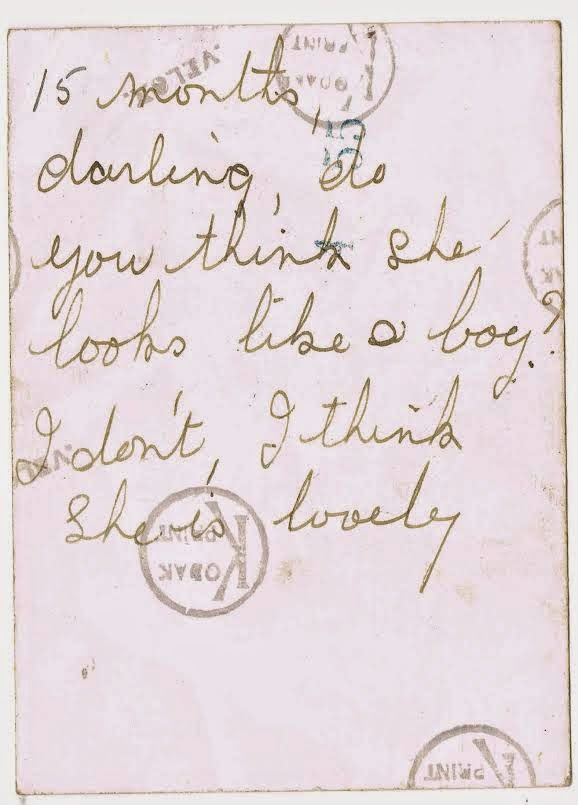 15 months,
darling, do
you think she
looks like a boy?
I don't, I think
she is lovely
VELOX
KODAK
PRINT
KODAK
PRINT
PRINT